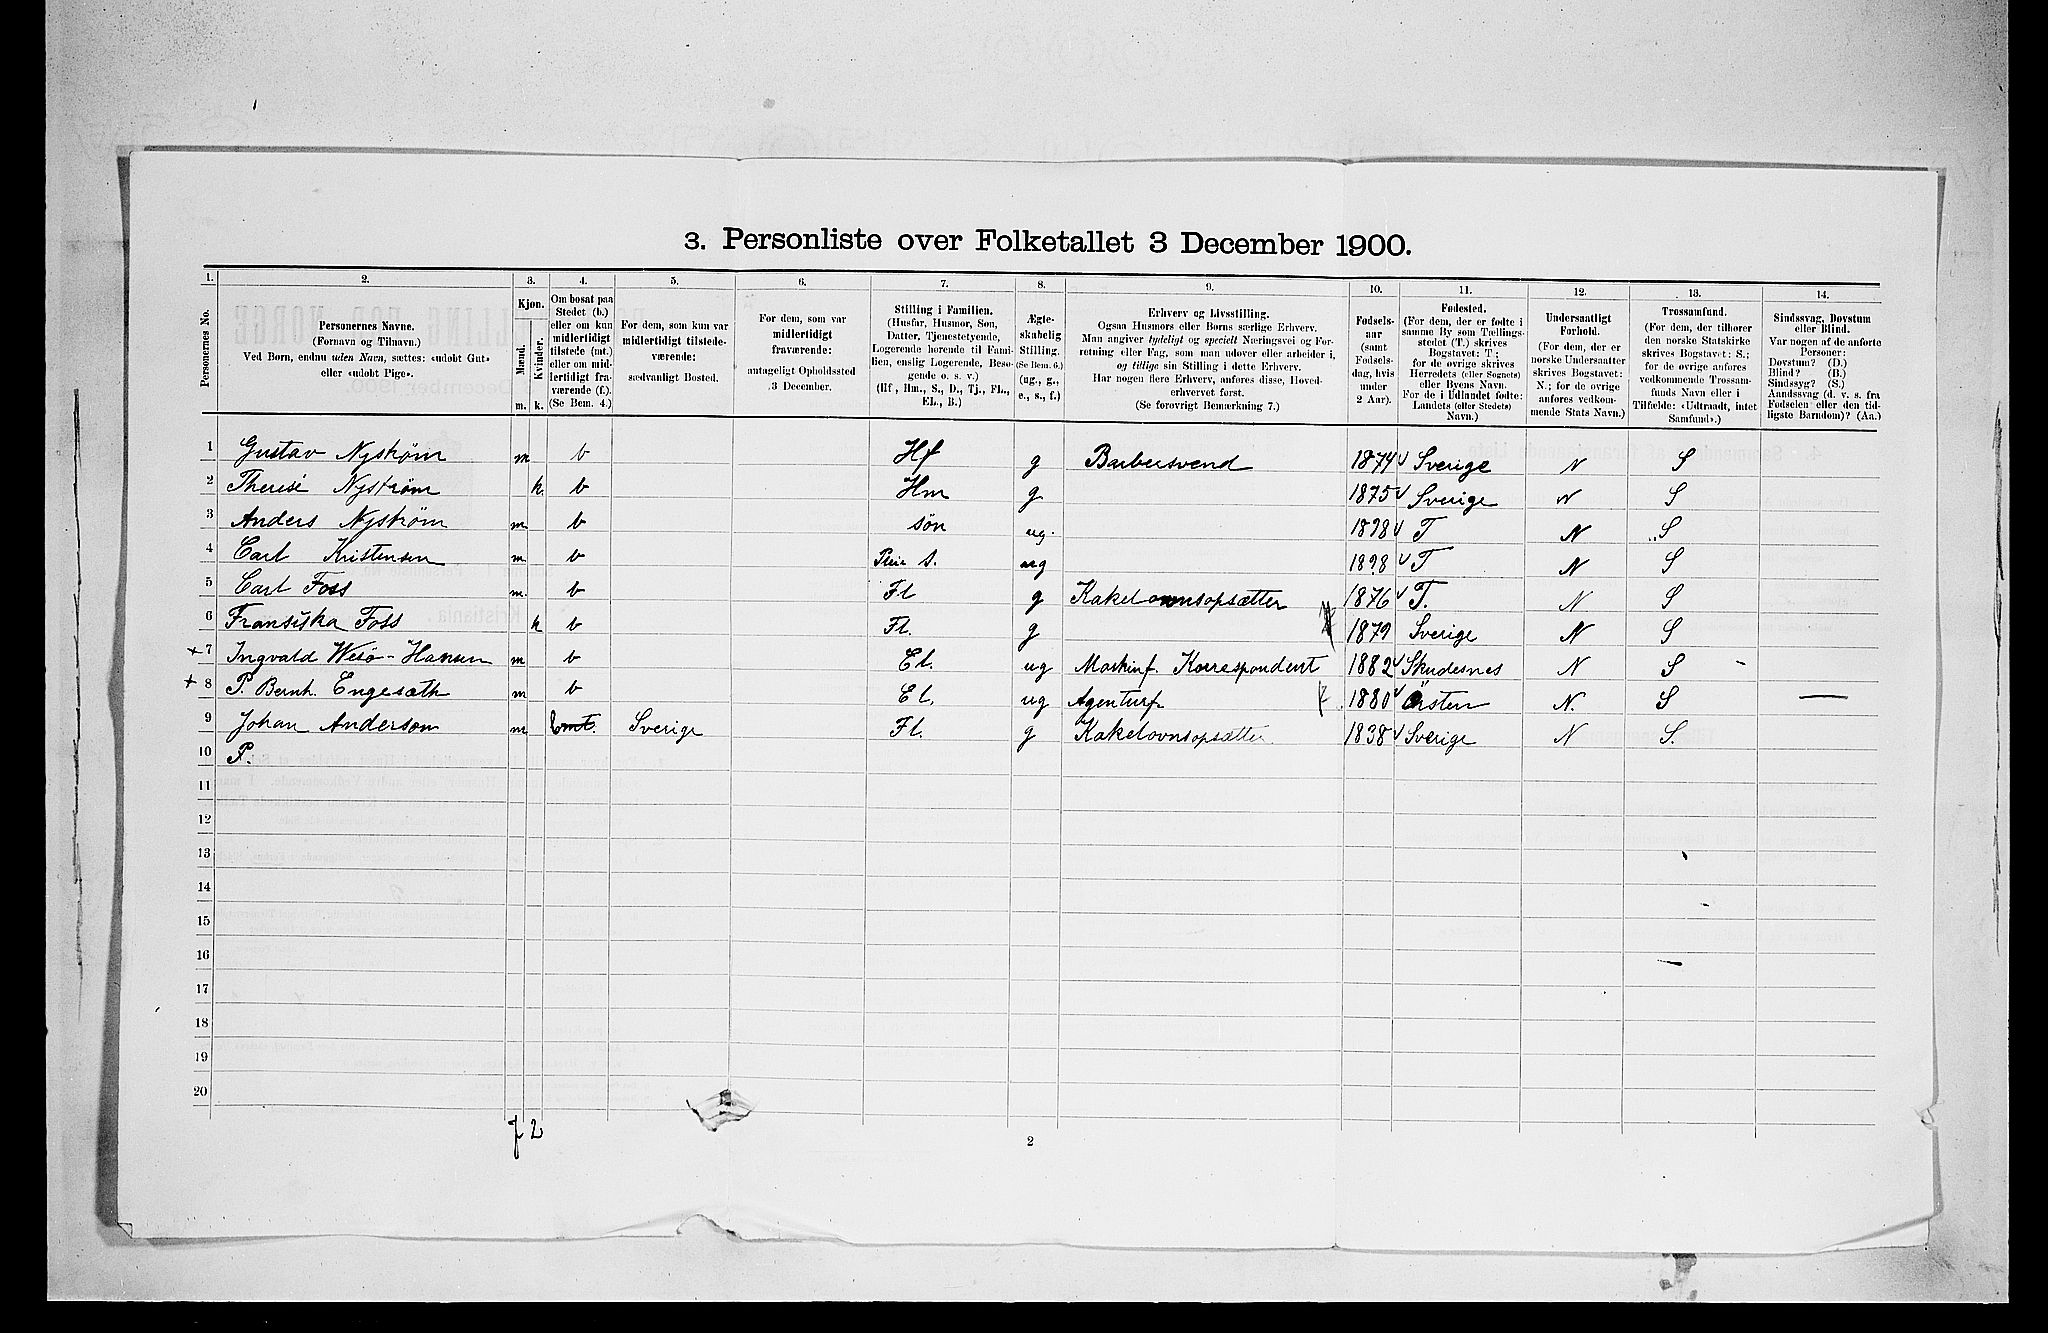 3. Personliste over Folketallet 3 December 1900.
1. 2. 3. 4. 5. 6. 7. 8. 9. 10. 11. 12. 13. 14.
Personernes No.
Personernes Navne.
(Fornavn og Tilnavn.)
Ved Børn, endnu uden Navn, sættes: «udøbt Gut»
eller «udøbt Pige».
Kjøn.
Mænd.
Kvinder.
m. k.
Om bosat paa
Stedet (b.)
eller om kun
midlertidigt
tilstede (mt.)
eller om mid-
lertidigt fra-
værende (f.).
(Se Bem. 4.)
For dem, som kun var
midlertidigt tilstede-
værende:
sædvanligt Bosted.
For dem, som var
midlertidigt
fraværende:
antageligt Opholdssted
3 December.
Stilling i Familien.
(Husfar, Husmor, Søn,
Datter, Tjenestetyende,
Logerende hørende til Fami-
lien, enslig Logerende, Besø-
gende o. s. v.)
(Hf, Hm., S., D., Tj., FL.,
EL., B.)
Ægte-
skabelig
Stilling.
(Se Bem. 6.)
(ug., g.,
e., s., f.)
Erhverv og Livsstilling.
Ogsaa Husmors eller Børns særlige Erhverv.
Man angiver tydeligt og specielt Næringsvei og For-
retning eller Fag, som man udøver eller arbeider i,
og tillige sin Stilling i dette Erhverv.
Har nogen flere Erhverv, anføres disse, Hoved-
erhvervet først.
(Se forøvrigt Bemærkning 7.)
Fødsels-
aar
(samt
Fødsels-
dag, hvis
under
2 Aar).
Fødested.
(For dem, der er fødte i
samme By som Tællings-
stedet (T.) skrives
Bogstavet: T;
for de øvrige skrives
Herredets (eller Sognets)
eller Byens Navn.
For de i Udlandet fødte:
Landets (eller Stedets)
Navn.)
Undersaatligt
Forhold.
(For dem, der er
norske Undersaatter
skrives Bogstavet:
N.; for de øvrige
anføres vedkom-
mende Stats Navn.)
Trossamfund.
(For dem, der tilhører
den norske Statskirke
skrives Bogstavet: S.;
for de øvrige anføres
vedkommende Trossam-
funds Navn eller i
Tilfælde: «Udtraadt, intet
Samfund».)
Sindssvag, Døvstum
eller Blind.
Var nogen af de anførte
Personer:
Døvstum? (D.)
Blind? (B.)
Sindssyg? (S.)
Aandssvag (d. v. s. fra
Fødselen eller den tid-
ligste Barndom)? (Aa.)
1 Gustav Nyström m b Hf g Barbersvend 1874 Sverige N S
2 Therese Nyström k. b Hm g 1875 Sverige N S
3 Anders Nyström m. b søn ug. 1898 T N S
4 Carl Kristensen m. b Pleie S. ug 1898 T N S
5 Carl Foss m. b Fl g Kakelovnsopsætter 1876 T. N S
6 Fransiska Foss k b Fl. g 1879 Sverige N S
+ 7 Ingvald Wesø-Hansen m b El. ug Maskinf. Korrespondent 1882 Skudesnes N S -
+ 8 P. Bernh. Engesæth m b El. ug Agenturf. 1880 Ørsten N. S —
9 Johan Anderson m mt. Sverige Fl. g Kakelovnsopsætter 1838 Sverige N S.
10 P.
11
12
13
14
15
16
17
18
19
20
7 2
2